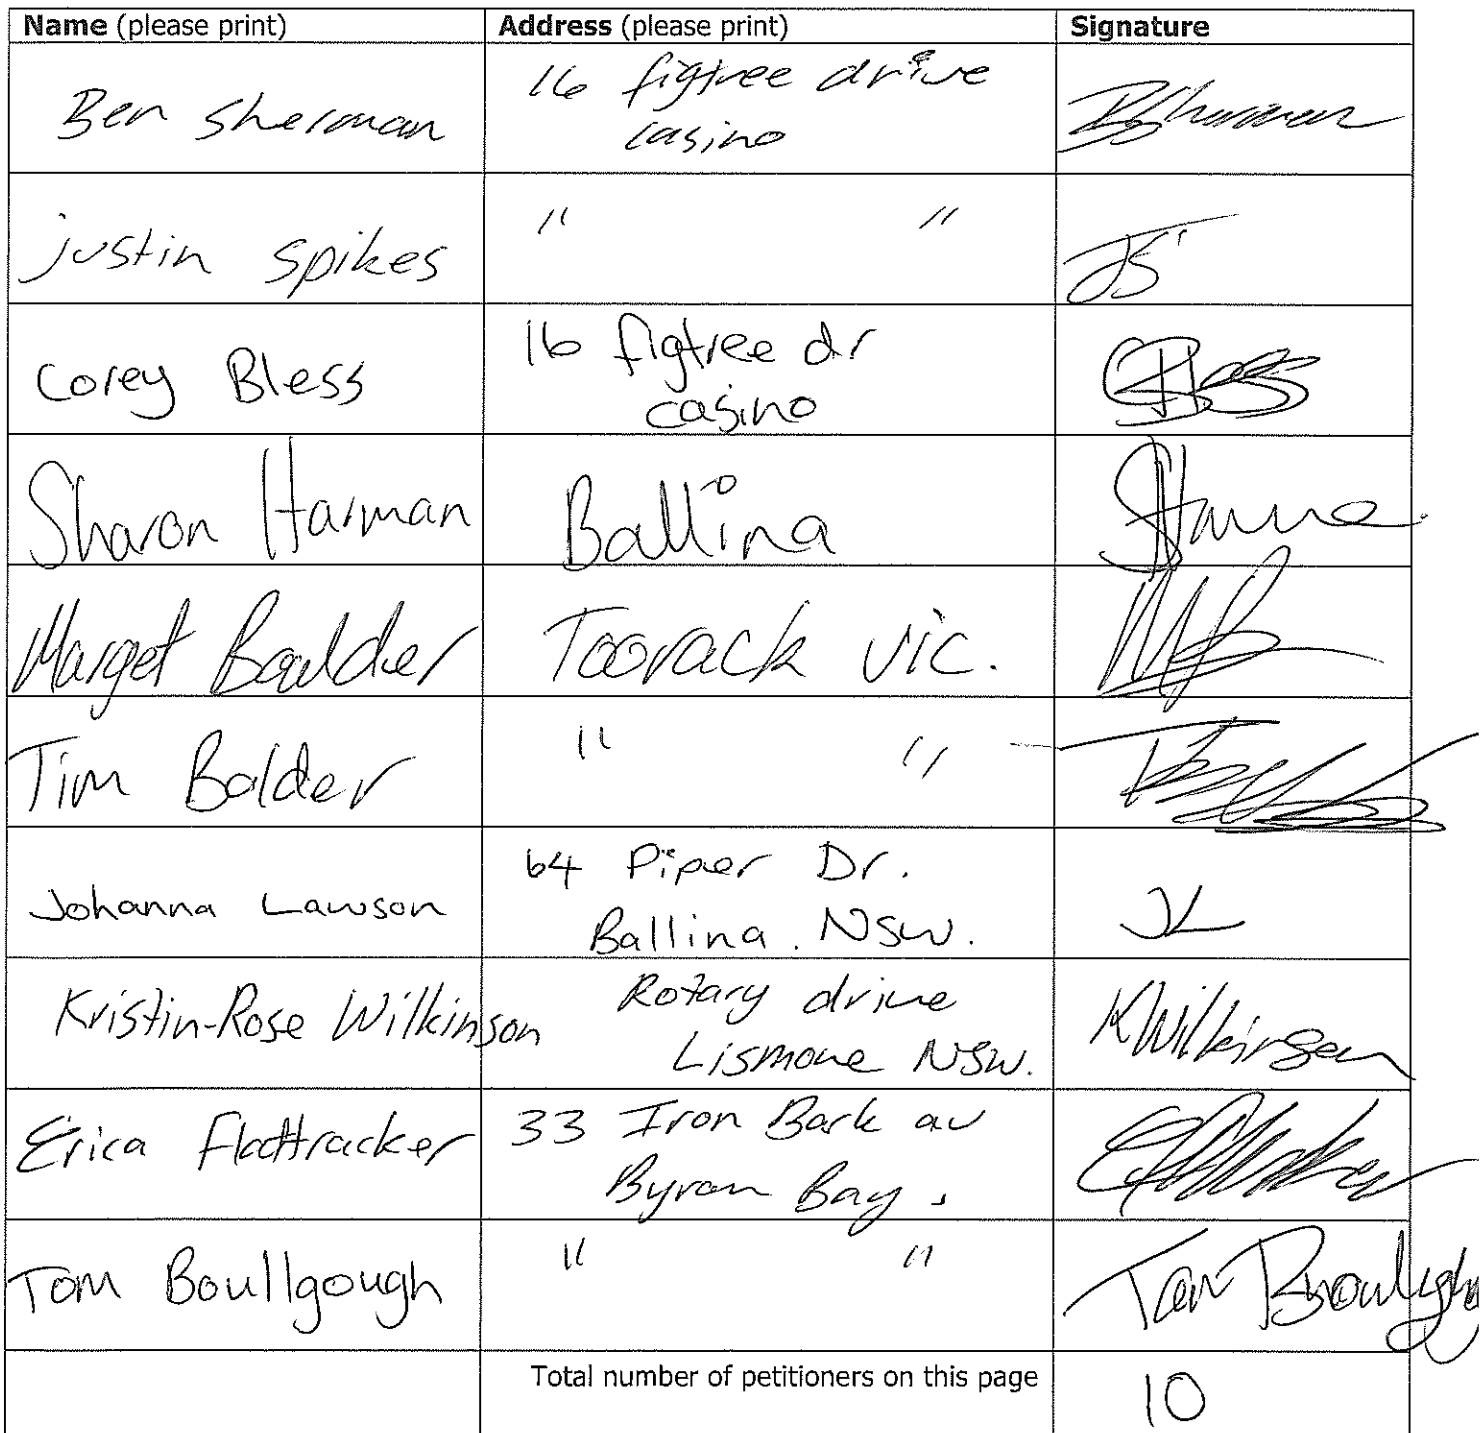 Name (please print) Address (please print) Signature
Ben Sherman 16 figtree drive
casino BSherman
justin spikes " " JS
Corey Bless 16 figtree dr
casino
Sharon Harman Ballina
Marget Boulder Toorack vic.
Tim Bolder " "
Johanna Lawson 64 Piper Dr.
Ballina. NSW. JL
Kristin-Rose Wilkinson Rotary drive
Lismore NSW. KWilkinson
Erica Flattracker 33 Iron Bark av
Byron Bay.
Tom Boullgough " " Tom
Total number of petitioners on this page 10